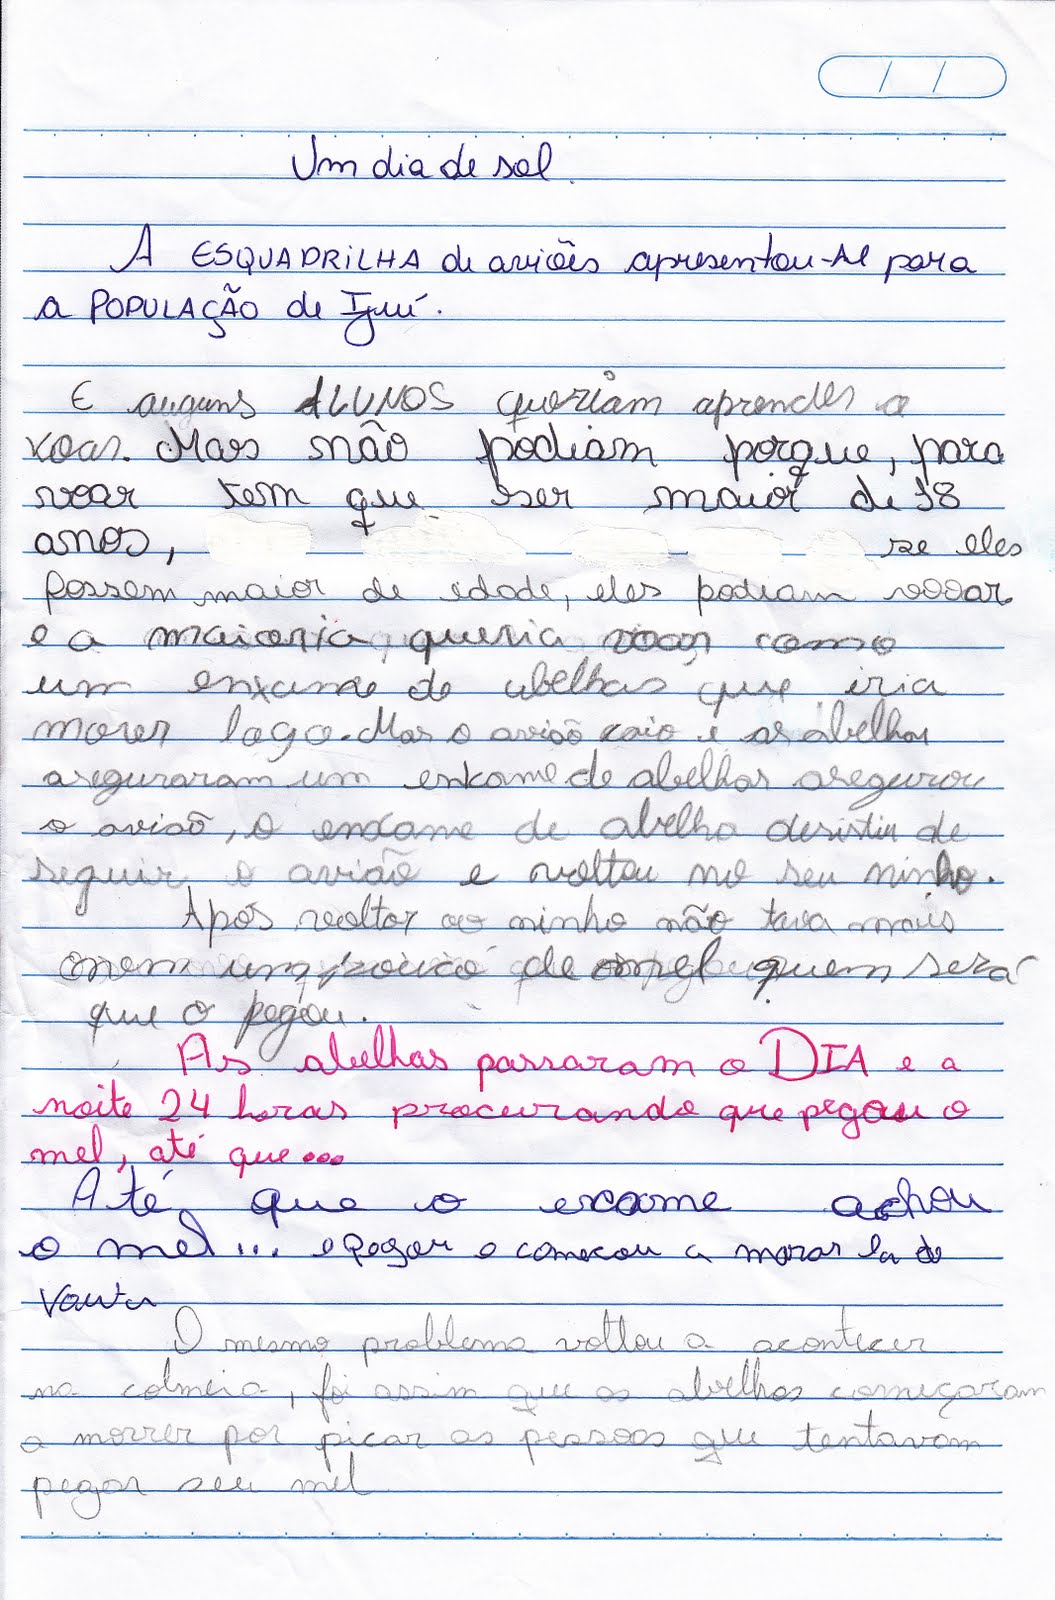 Um dia de sol.
A ESQUADRILHA de aviões apresentou-se para
a POPULAÇÃO de Ijuí.
E auguns ALUNOS queriam aprender a
voar. Mas não podiam porque, para
voar tem que ser maior de 18
anos, se eles
fossem maior de idade, eles podiam vooar
e a maioria queria voar como
um enxame de abelhas que iria
morer logo. Mas o avião caio e as abelhas
aseguraram um enxame de abelhas asegurou
o avião, o enxame de abelha desistiu de
seguir o avião e voltou no seu ninho.
Após voltar ao ninho não tava mais
nem um pouco de mel quem será
que o pegou?
As abelhas passaram o DIA e a
noite 24 horas procurando que pegou o
mel, até que...
Até que o exame achou
o mel... e pegou e começou a morar la de
O mesmo problema voltou a acontecer
na colmeia, foi assim que as abelhas começaram
a morrer por picar as pessoas que tentavam
pegar seu mel